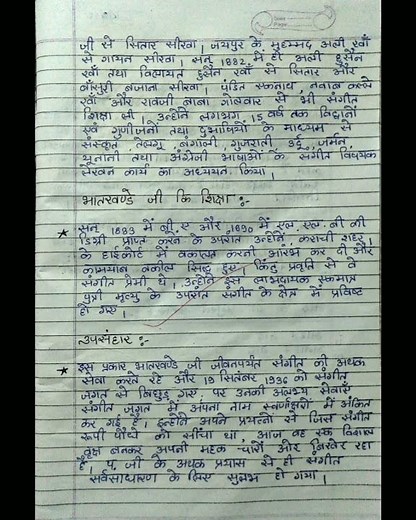 Date
Page
जी से सितार सीखा। जयपुर के मुहम्मद अली खाँ
से गायन सीखा। सन् 1882 में ही अली हुसैन
खाँ तथा विलायत हुसैन खाँ से सितार और
बाँसुरी बजाना सीखा। पंडित एकनाथ, नवाब कल्बे
खाँ और रावजी बाबा गोलवार से भी संगीत
शिक्षा ली। उन्होंने लगभग 15 वर्ष तक विद्वानों
एवं गुणीजनों तथा दुभाषियों के माध्यम से
संस्कृत, तेलगू, बंगाली, गुजराती, उर्दू, जर्मन,
यूनानी तथा अंग्रेजी भाषाओं के संगीत विषयक
लेखन कार्य का अध्ययन किया।
भातखण्डे जी कि शिक्षा :-
★ सन् 1883 में बी. ए. और 1890 में एल. एल. बी की
डिग्री प्राप्त करने के उपरांत उन्होंने, कराची शहर
के हाईकोर्ट में वकालत करनी आरंभ कर दी और
कामयाब वकील सिद्ध हुए। किंतु प्रवृति से वे
संगीत प्रेमी थे। उन्होंने इस लाभदायक एकमात्र
पुत्री मृत्यु के उपरांत संगीत के क्षेत्र में प्रविष्ट
हो गए।
उपसंहार :-
★ इस प्रकार भातखण्डे जी जीवनपर्यंत संगीत की अथक
सेवा करते रहे और 19 सितंबर 1936 को संगीत
जगत से बिछुड़ गए, पर उनकी अलभ्य सेवाएँ
संगीत जगत में अपना नाम स्वर्णाक्षरों में अंकित
कर गई हैं। इन्होंने अपने प्रयत्नों से जिस संगीत
रूपी पौधे को सींचा था, आज वह एक विशाल
वृक्ष बनकर अपनी महक चारों ओर बिखेर रहा
है। प. जी के अथक प्रयास से ही संगीत
सर्वसाधारण के लिए सुलभ हो गया।